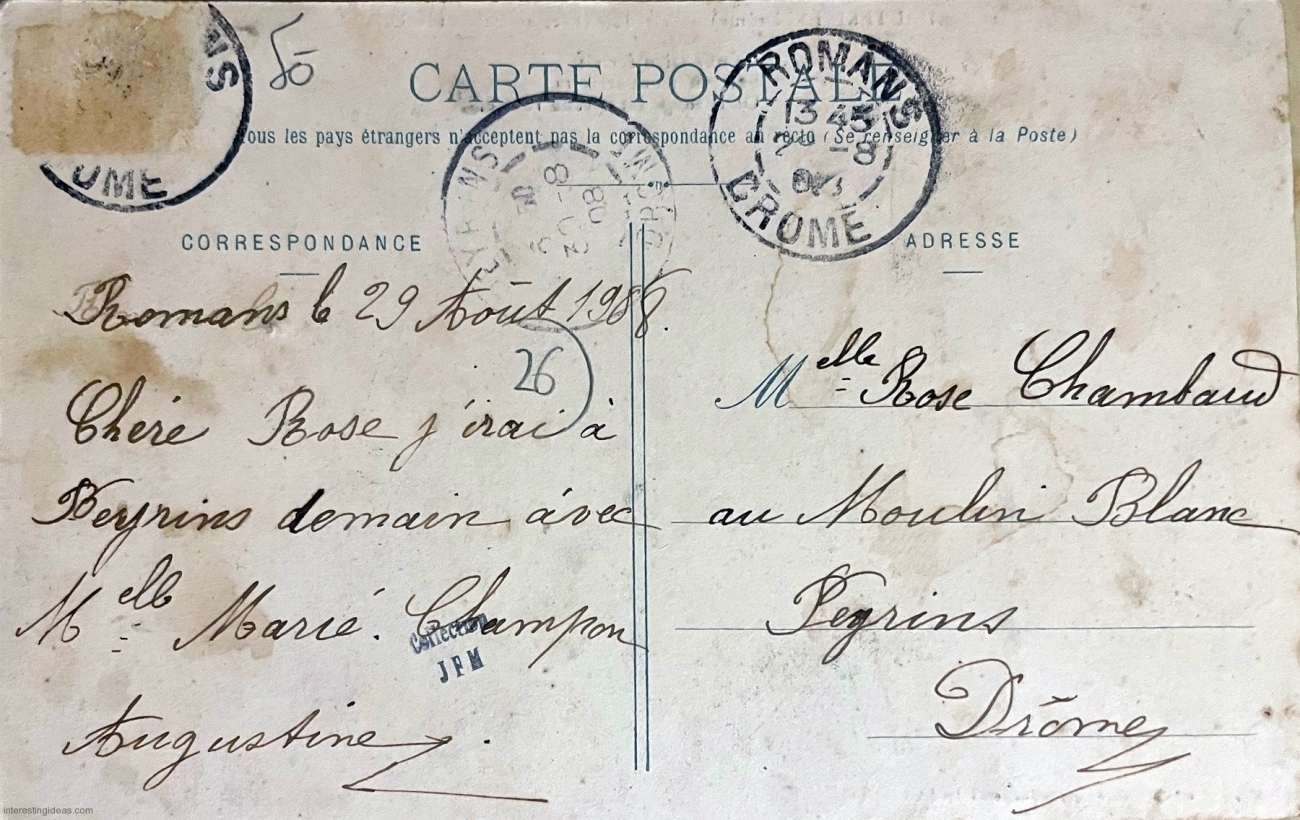 50
CARTE POSTALE
Tous les pays étrangers n'acceptent pas la correspondance au recto (Se renseigner à la Poste)
ROMANS
13 45
29 -8
08
DROME
PEYRINS
30 -8
08
DROME
CORRESPONDANCE
ADRESSE
Romans le 29 Août 1908.
26
Chéré Rose j'irai à
Peyrins demain ávec
Melle Marié. Champon
Augustine
Collection
JPM
Melle Rose Chambaud
au Moulin Blanc
Peyrins
Drôme
interestingideas.com